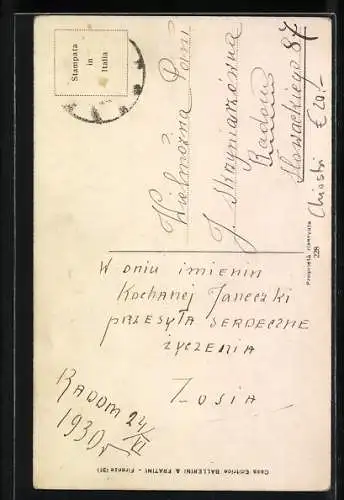 Stampata
in
Italia
Wielmożna Pani
J. Skrzyniarzówna
Radom
Słowackiego 87
Chiostri € 20.-
Proprietà riservata
228
W dniu imienin
Kochanej Janeczki
przesyła serdeczne
życzenia
Zosia
Radom 24/VI
1930 r
Casa Editrice BALLERINI & FRATINI - Firenze (21)